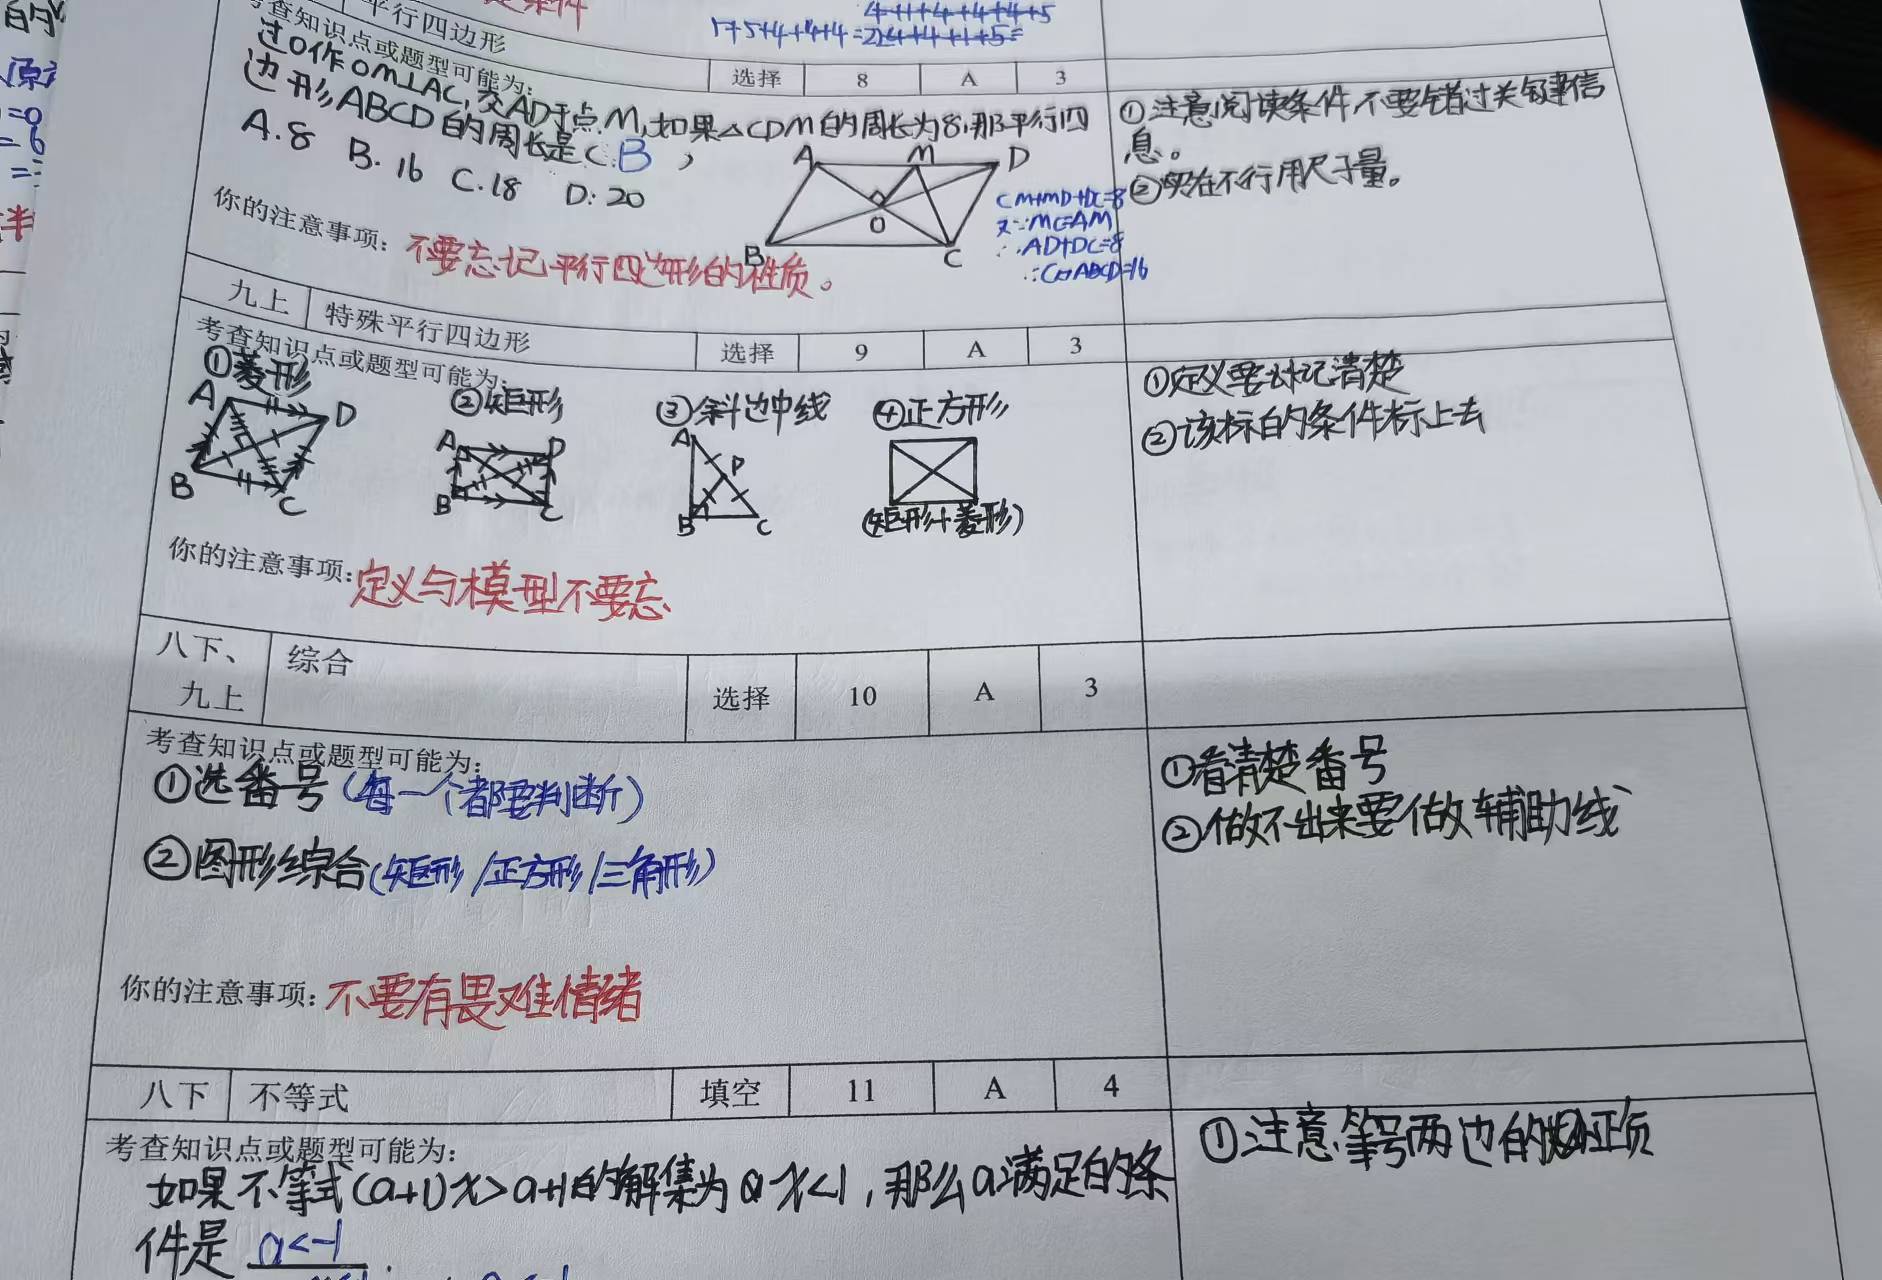 平行四边形
考查知识点或题型可能为:
选择 8 A 3
过O作OM⊥AC,交AD于点M,如果△CDM的周长为8,那平行四
边形ABCD的周长是( B ,
A.8 B.16 C.18 D:20
A M D
O
B C
CM+MD+DC=8
又∵MC=AM
∴AD+DC=8
∴C▱ABCD=16
你的注意事项:不要忘记平行四边形的性质。
①注意阅读条件不要错过关键信
息。
②实在不行用尺子量。
九上 特殊平行四边形 选择 9 A 3
考查知识点或题型可能为:
①菱形 ②矩形 ③斜边中线 ④正方形
A D
B C
A D
B C
A
D
B C
(矩形+菱形)
你的注意事项:定义与模型不要忘
①定义要
记清楚
②该标的条件标上去
八下、
九上
综合 选择 10 A 3
考查知识点或题型可能为:
①选番号(每一个都要判断)
②图形综合(矩形/正方形/三角形)
你的注意事项:不要有畏难情绪
①看清楚番号
②做不出来要做辅助线
八下 不等式 填空 11 A 4
考查知识点或题型可能为:
如果不等式(a+1)x>a+1的解集为x<1,那么a满足的条
件是 a<-1
①注意
号两边的
正负